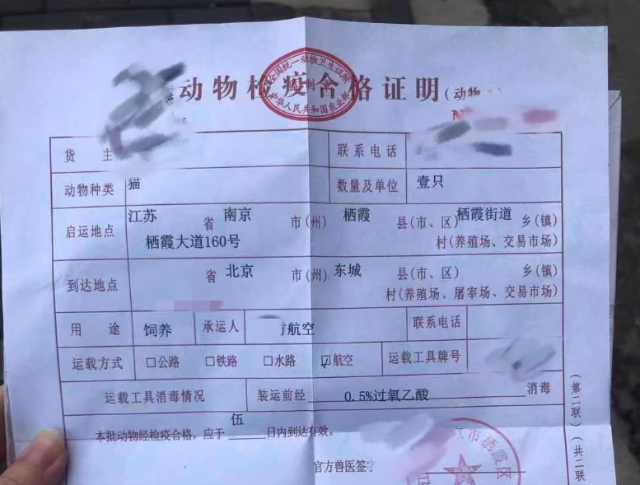 动物检疫合格证明(动物
货 主
联系电话
动物种类 猫 数量及单位 壹只
启运地点 江苏 省 南京 市(州) 栖霞 县(市、区) 栖霞街道 乡(镇)
栖霞大道160号 村(养殖场、交易市场)
到达地点 省 北京 市(州) 东城 县(市、区) 乡(镇)
村(养殖场、屠宰场、交易市场)
用 途 饲养 承运人 航空 联系电话
运载方式 □公路 □铁路 □水路 ☑航空 运载工具牌号
运载工具消毒情况 装运前经 0.5%过氧乙酸 消毒
本批动物经检疫合格，应于 伍 日内到达有效。
官方兽医签:
市栖霞区
(第二联)
(共二联
中华人民共和国农业部